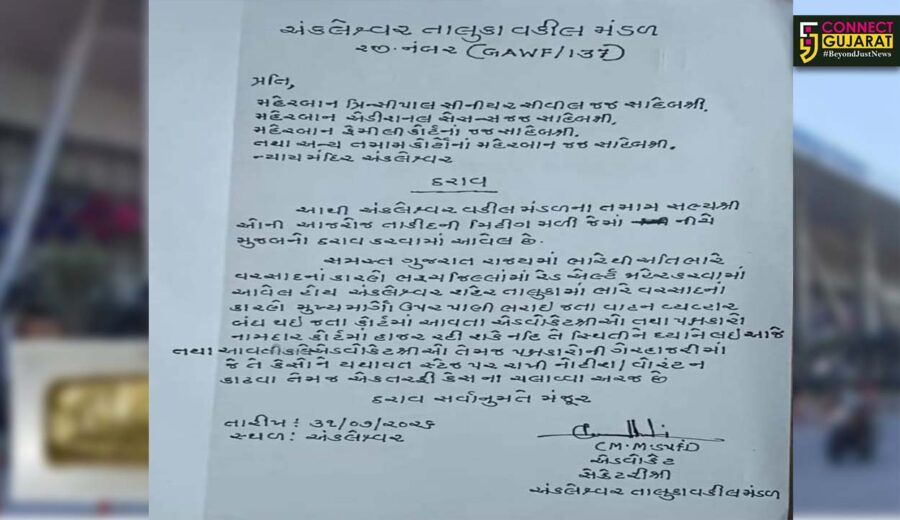 CONNECT
GUJARAT
#BeyondJustNews
અંકલેશ્વર તાલુકા વકીલ મંડળ
રજી.નંબર (GAWF/137)
પ્રતિ,
મહેરબાન પ્રિન્સીપાલ સીનીયર સીવીલ જજ સાહેબશ્રી,
મહેરબાન એડીશનલ સેસન્સ જજ સાહેબશ્રી,
મહેરબાન ફેમીલી કોર્ટનાં જજ સાહેબશ્રી.
તથા અન્ય તમામ કોર્ટોનાં મહેરબાન જજ સાહેબશ્રી.
ન્યાય મંદિર અંકલેશ્વર
ઠરાવ
આથી અંકલેશ્વર વકીલ મંડળના તમામ સભ્યશ્રી
ઓની આજરોજ તાકીદની મિટીંગ મળી જેમાં નીચે
મુજબનો ઠરાવ કરવામાં આવેલ છે.
સમસ્ત ગુજરાત રાજ્યમાં ભારેથી અતિભારે
વરસાદનાં કારણે ભરૂચ જિલ્લામાં રેડ એલર્ટ જાહેર કરવામાં
આવેલ હોય અંકલેશ્વર શહેર તાલુકામાં ભારે વરસાદના
કારણે મુખ્ય માર્ગો ઉપર પાણી ભરાઈ જતા વાહન વ્યવહાર
બંધ થઈ જતા કોર્ટમાં આવતા એડવોકેટશ્રીઓ તથા પક્ષકારો
નામદાર કોર્ટમાં હાજર રહી શકે નહિ તે સ્થિતીને ધ્યાને લઈ આજે
તથા આવતીકાલે એડવોકેટશ્રીઓ તેમજ પક્ષકારોની ગેરહાજરીમાં
જે તે કેસોને યથાવત સ્ટેજ પર રાખી નોટીશ/વોરંટ ન
કાઢવા તેમજ એકતરફી કેસ ના ચલાવવા અરજ છે
ઠરાવ સર્વાનુમતે મંજૂર
તારીખ: ૩૧/૦૭/૨૦૨૬
સ્થળ: અંકલેશ્વર
એડવોકેટ
સેક્રેટરીશ્રી
અંકલેશ્વર તાલુકા વકીલ મંડળ